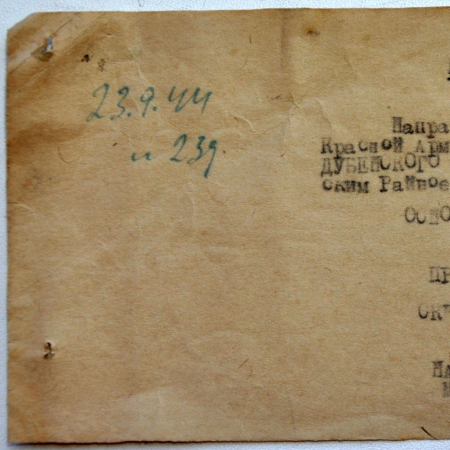 23.9.44
и 239.
Напра
Красной Арм
ДУБЕНСКОГО
ским Райвое
ОСНО
ПР
НА